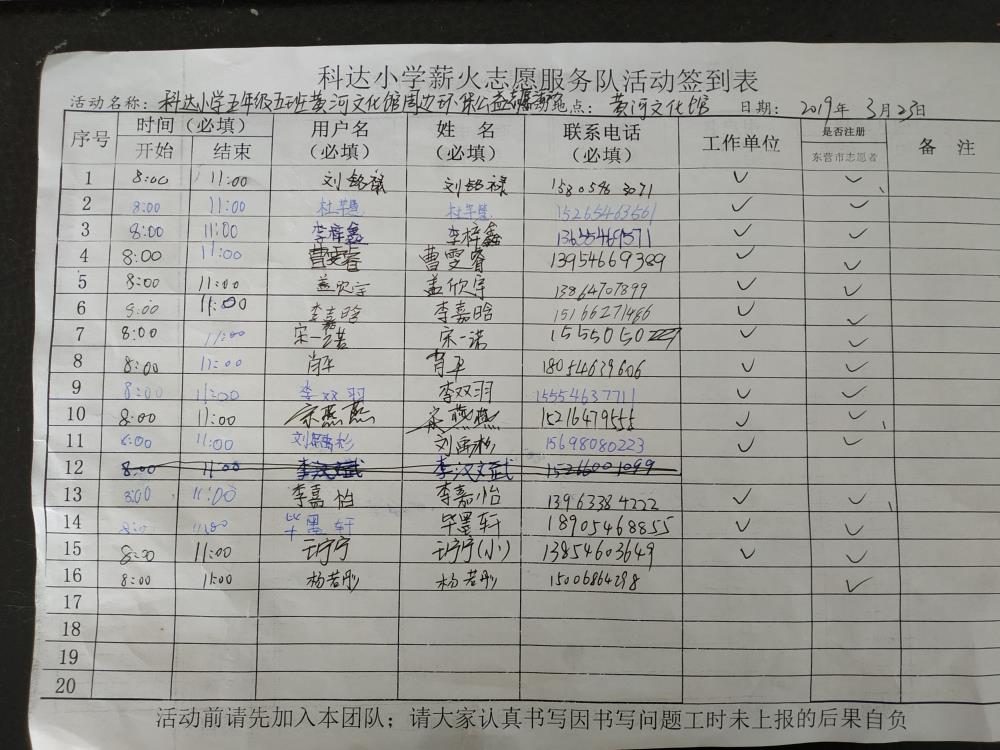 科达小学薪火志愿服务队活动签到表
活动名称：科达小学五年级五班黄河文化馆周边环保公益 地点：黄河文化馆 日期：2019年3月23日
序号 时间（必填） 用户名（必填） 姓 名（必填） 联系电话（必填） 工作单位 是否注册东营市志愿者 备 注
开始 结束
1 8:00 11:00 刘 禄 刘 禄 ✓ ✓
2 8:00 11:00 杜 杜 15265463561 ✓ ✓
3 8:00 11:00 李梓鑫 李梓鑫 13655469571 ✓ ✓
4 8:00 11:00 曹雯睿 曹雯睿 13954669389 ✓ ✓
5 8:00 11:00 盖欣宇 盖欣宇 13864707899 ✓ ✓
6 8:00 11:00 李嘉晗 李嘉晗 15166271486 ✓ ✓
7 8:00 11:00 宋一诺 宋一诺 ✓ ✓
8 8:00 11:00 肖平 肖平 18054639606 ✓ ✓
9 8:00 11:00 李双羽 李双羽 15554637711 ✓ ✓
10 8:00 11:00 宋燕燕 宋燕燕 15216479555 ✓ ✓
11 8:00 11:00 刘禹杉 刘禹杉 15698080223 ✓ ✓
12 8:00 11:00 李汉文武 李汉文武 15266001099
13 8:00 11:00 李嘉怡 李嘉怡 13963384222 ✓ ✓
14 8:00 11:00 毕墨轩 毕墨轩 18905468855 ✓ ✓
15 8:00 11:00 王宁宁 王宁宁(小) 13854603649 ✓ ✓
16 8:00 11:00 杨若彤 杨若彤 15006864298 ✓
17
18
19
20
活动前请先加入本团队；请大家认真书写因书写问题工时未上报的后果自负